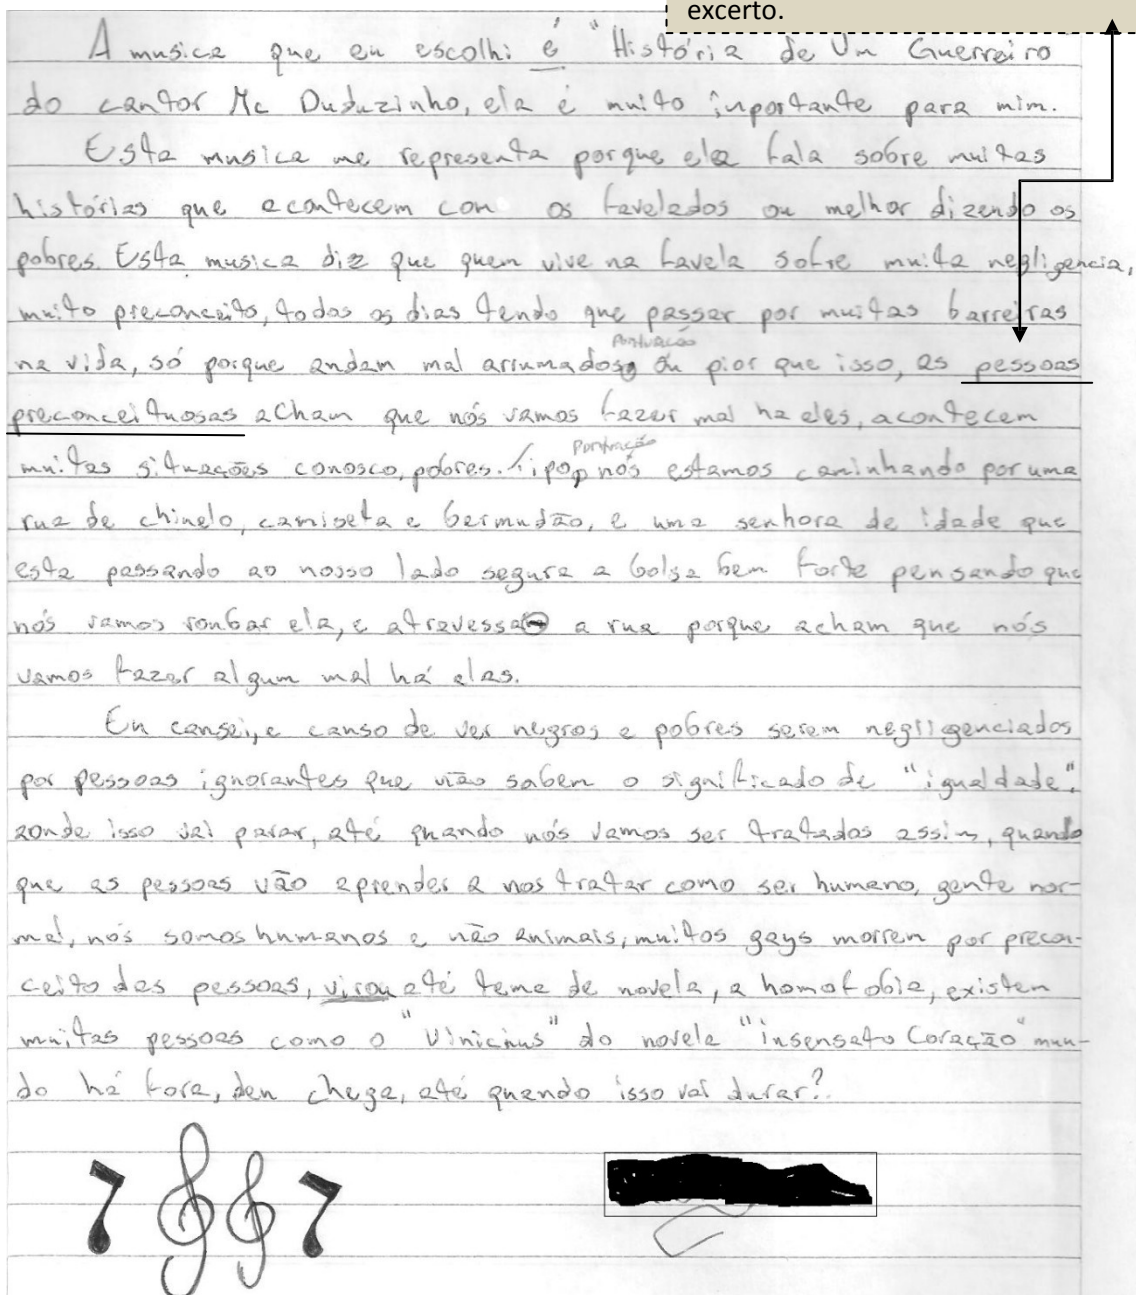 excerto.
A musica que eu escolhi é "História de Um Guerreiro
do cantor Mc Duduzinho, ela é muito inportante para mim.
Esta musica me representa porque ela fala sobre muitas
histórias que acontecem com os favelados ou melhor dizendo os
pobres. Esta musica diz que quem vive na favela sofre muita negligencia,
muito preconceito, todos os dias tendo que passar por muitas barreiras
Pontuação
na vida, só porque andam mal arrumados, ou pior que isso, as pessoas
preconceituosas acham que nós vamos fazer mal ha eles, acontecem
Pontuação
muitas situações conosco, pobres. Tipo, nós estamos caminhando por uma
rua de chinelo, camiseta e bermudão, e uma senhora de idade que
esta passando ao nosso lado segura a bolsa bem forte pensando que
nós vamos roubar ela, e atravessa a rua porque acham que nós
vamos fazer algum mal há elas.
Eu cansei, e canso de ver negros e pobres serem negligenciados
por pessoas ignorantes que não sabem o significado de "igualdade".
aonde isso vai parar, até quando nós vamos ser tratados assim, quando
que as pessoas vão aprender a nos tratar como ser humano, gente nor-
mal, nós somos humanos e não animais, muitos gays morrem por precon-
ceito das pessoas, virou até tema de novela, a homofobia, existem
muitas pessoas como o "Vinicius" do novela "insensato Coração" mun-
do há fora, deu chega, até quando isso vai durar?